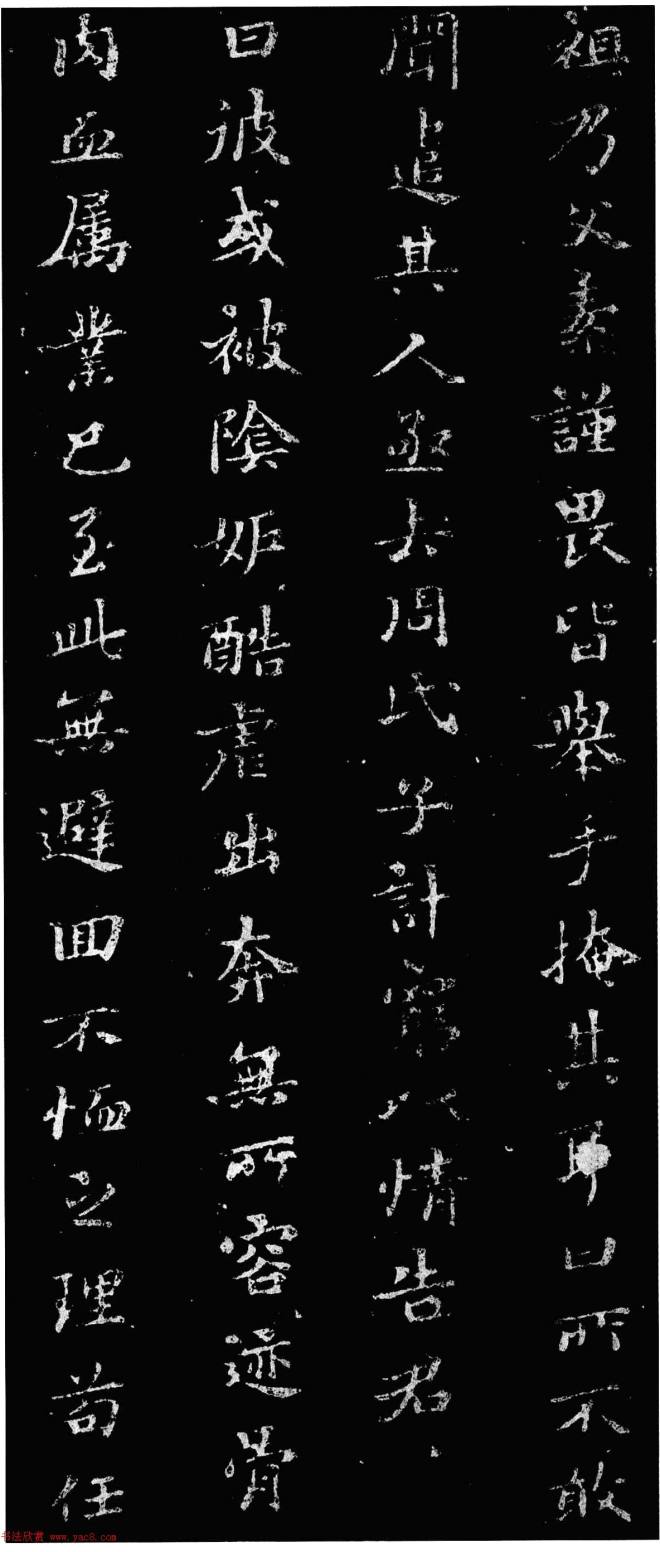 祖乃父素謹畏皆舉手掩其耳曰所不敢
聞追其人亟去周氏子計窮以情告君〻
曰彼或被陰妬酷虐出奔無所容迹骨
肉血属業已至此無避囬不恤之理苟任
书法欣赏 www.yac8.com